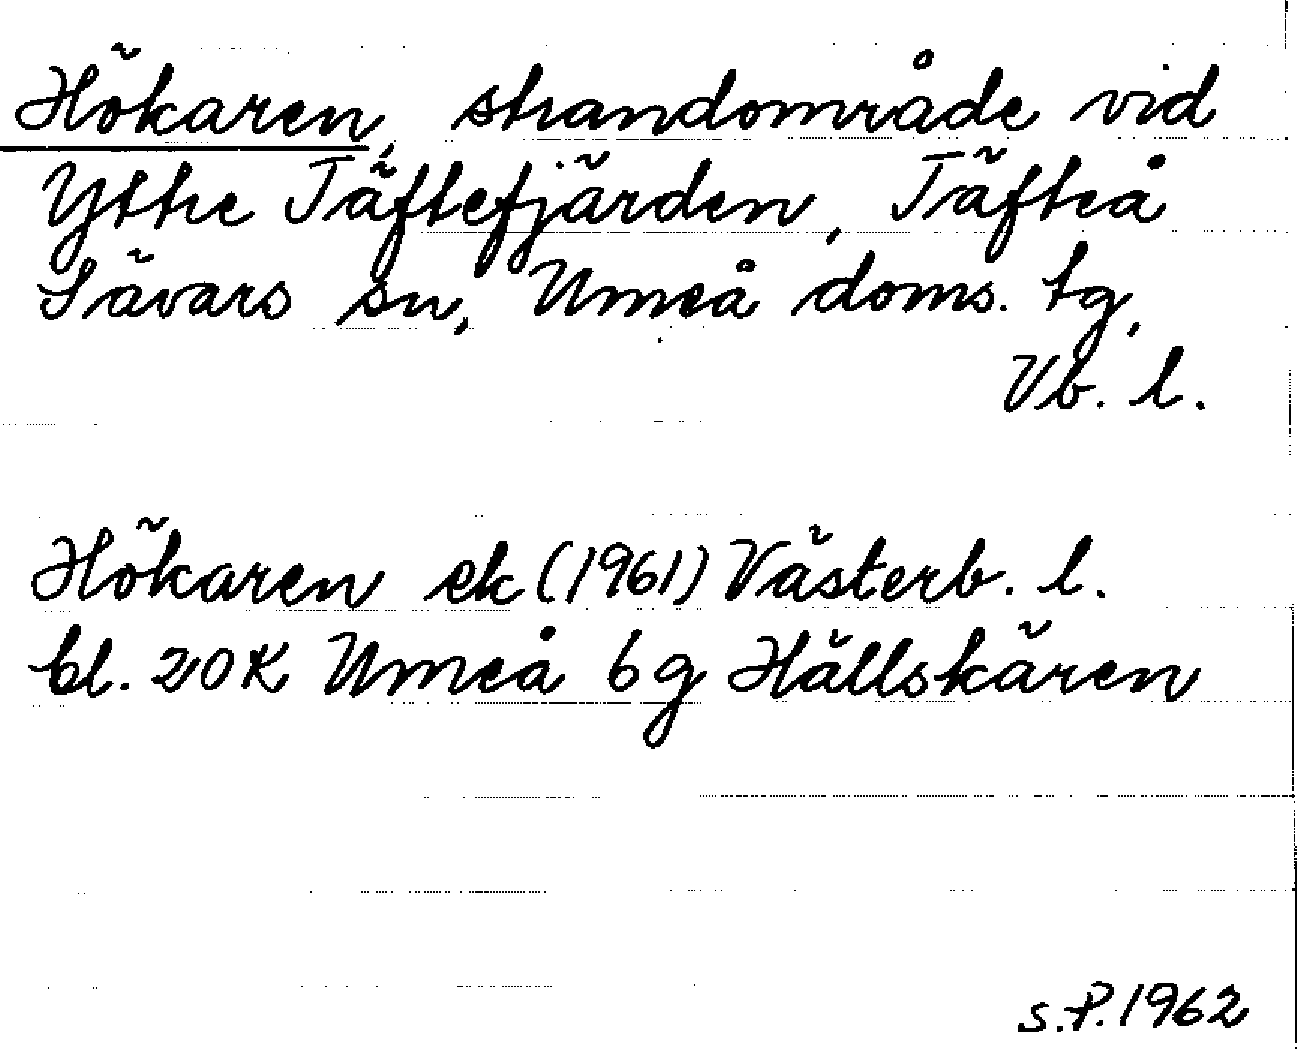 Hökaren, strandområde vid
Yttre Täftefjärden, Täfteå
Sävars sn, Umeå doms. tg,
Vb. l.
Hökaren ek (1961) Västerb. l.
bl. 20K Umeå 6g Hällskären
S.P. 1962